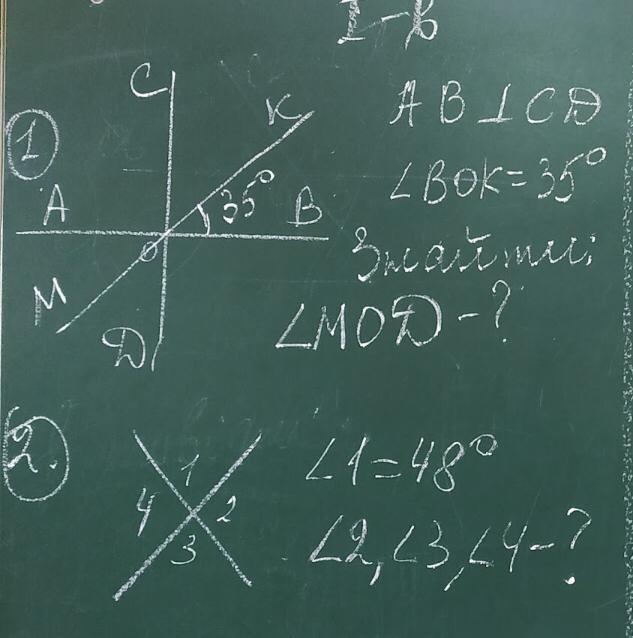 I-в
1
C
K
A
35°
B
O
M
D
AB⊥CD
∠BOK=35°
Знайти:
∠MOD-?
2.
1
4
2
3
∠1=48°
∠2,∠3,∠4-?